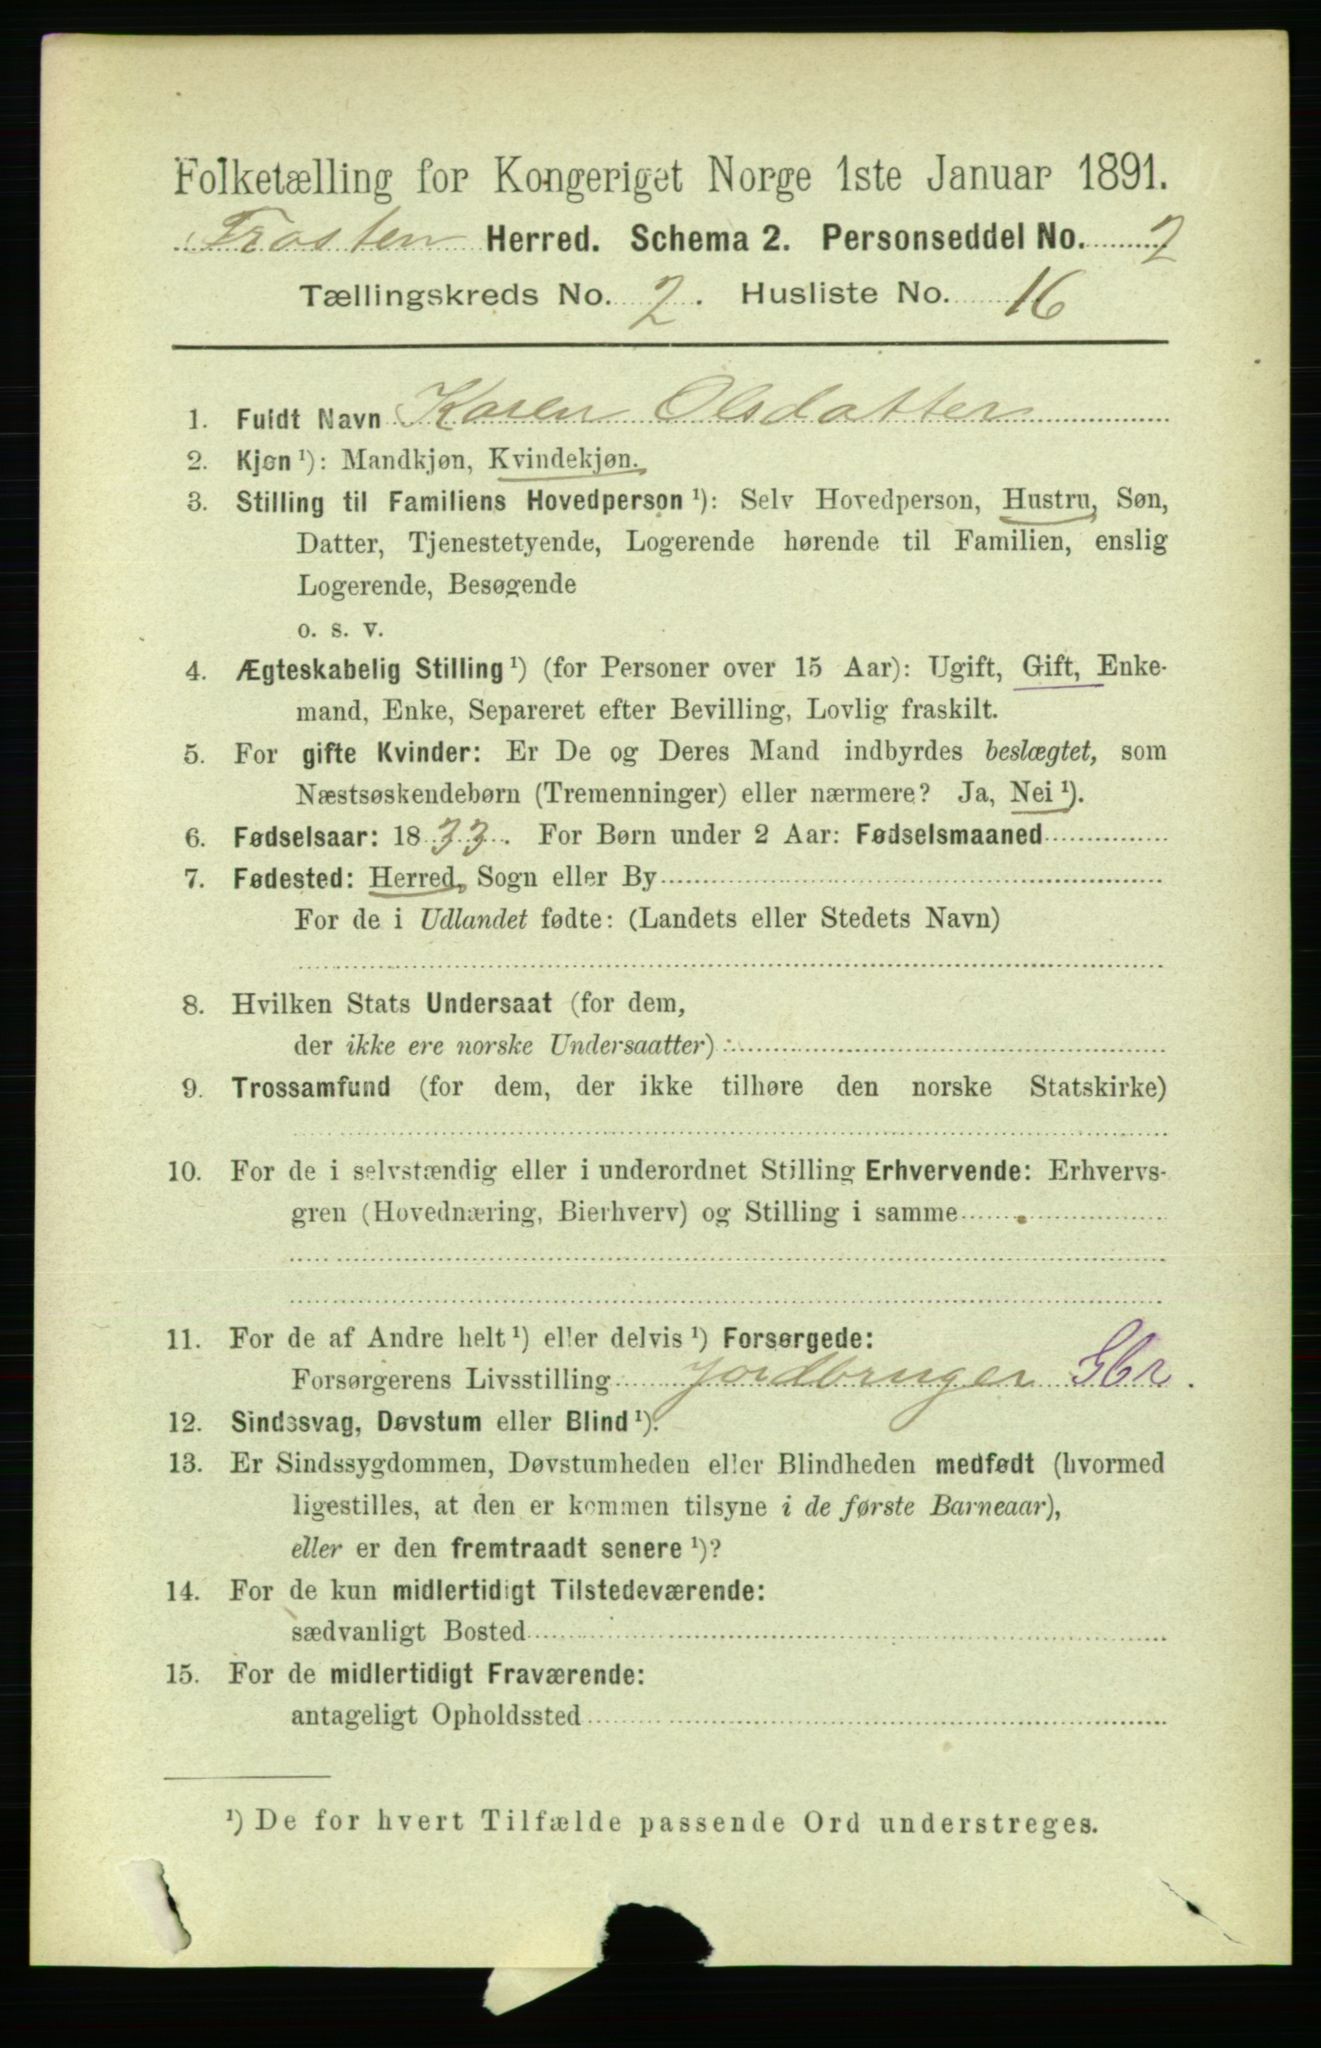 Folketælling for Kongeriget Norge 1ste Januar 1891.
Frosten Herred. Schema 2. Personseddel No. 2
Tællingskreds No. 2. Husliste No. 16
1. Fuldt Navn Karen Olsdatter
2. Kjøn ¹): Mandkjøn, Kvindekjøn.
3. Stilling til Familiens Hovedperson ¹): Selv Hovedperson, Hustru, Søn,
Datter, Tjenestetyende, Logerende hørende til Familien, enslig
Logerende, Besøgende
o. s. v.
4. Ægteskabelig Stilling ¹) (for Personer over 15 Aar): Ugift, Gift, Enke-
mand, Enke, Separeret efter Bevilling, Lovlig fraskilt.
5. For gifte Kvinder: Er De og Deres Mand indbyrdes beslægtet, som
Næstsøskendebørn (Tremenninger) eller nærmere? Ja, Nei ¹).
6. Fødselsaar: 1833. For Børn under 2 Aar: Fødselsmaaned
7. Fødested: Herred, Sogn eller By
For de i Udlandet fødte: (Landets eller Stedets Navn)
8. Hvilken Stats Undersaat (for dem,
der ikke ere norske Undersaatter):
9. Trossamfund (for dem, der ikke tilhøre den norske Statskirke)
10. For de i selvstændig eller i underordnet Stilling Erhvervende: Erhvervs-
gren (Hovednæring, Bierhverv) og Stilling i samme
11. For de af Andre helt ¹) eller delvis ¹) Forsørgede:
Forsørgerens Livsstilling Jordbruger Gbr.
12. Sindssvag, Døvstum eller Blind ¹).
13. Er Sindssygdommen, Døvstumheden eller Blindheden medfødt (hvormed
ligestilles, at den er kommen tilsyne i de første Barneaar),
eller er den fremtraadt senere ¹)?
14. For de kun midlertidigt Tilstedeværende:
sædvanligt Bosted
15. For de midlertidigt Fraværende:
antageligt Opholdssted
¹) De for hvert Tilfælde passende Ord understreges.